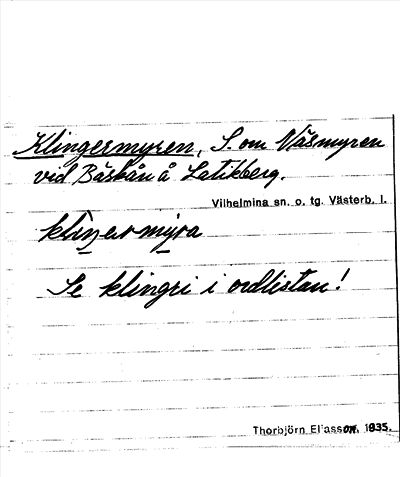 Klingermyren, S. om Näsmyren
vid Bäskån å Latikberg.
Vilhelmina sn. o. tg. Västerb. l.
kliŋermyra
Se klingri i ordlistan!
Thorbjörn Eliasson. 1935.